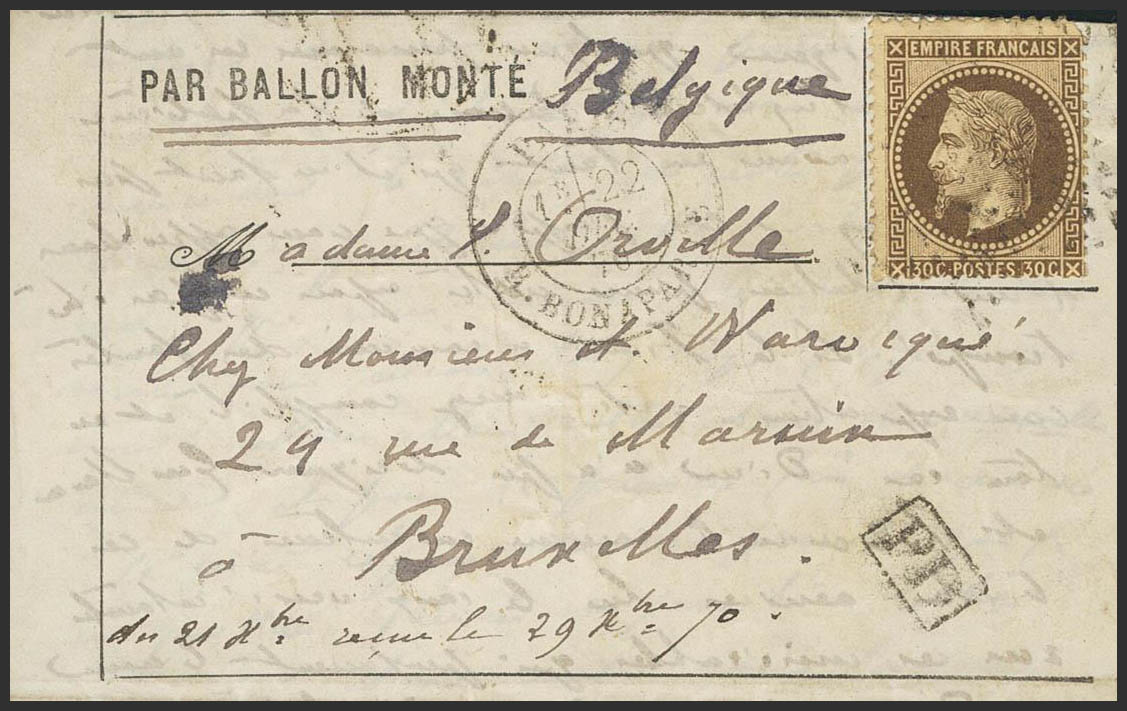 PAR BALLON MONTÉ Belgique
EMPIRE FRANCAIS
30C·POSTES 30C
1E 22
70
R. BONAPARTE
Madame l. Orville
Chez Monsieur A.
24 rue de
à Bruxelles.
PD
du 21 Xbre reçue le 29 Xbre 70.